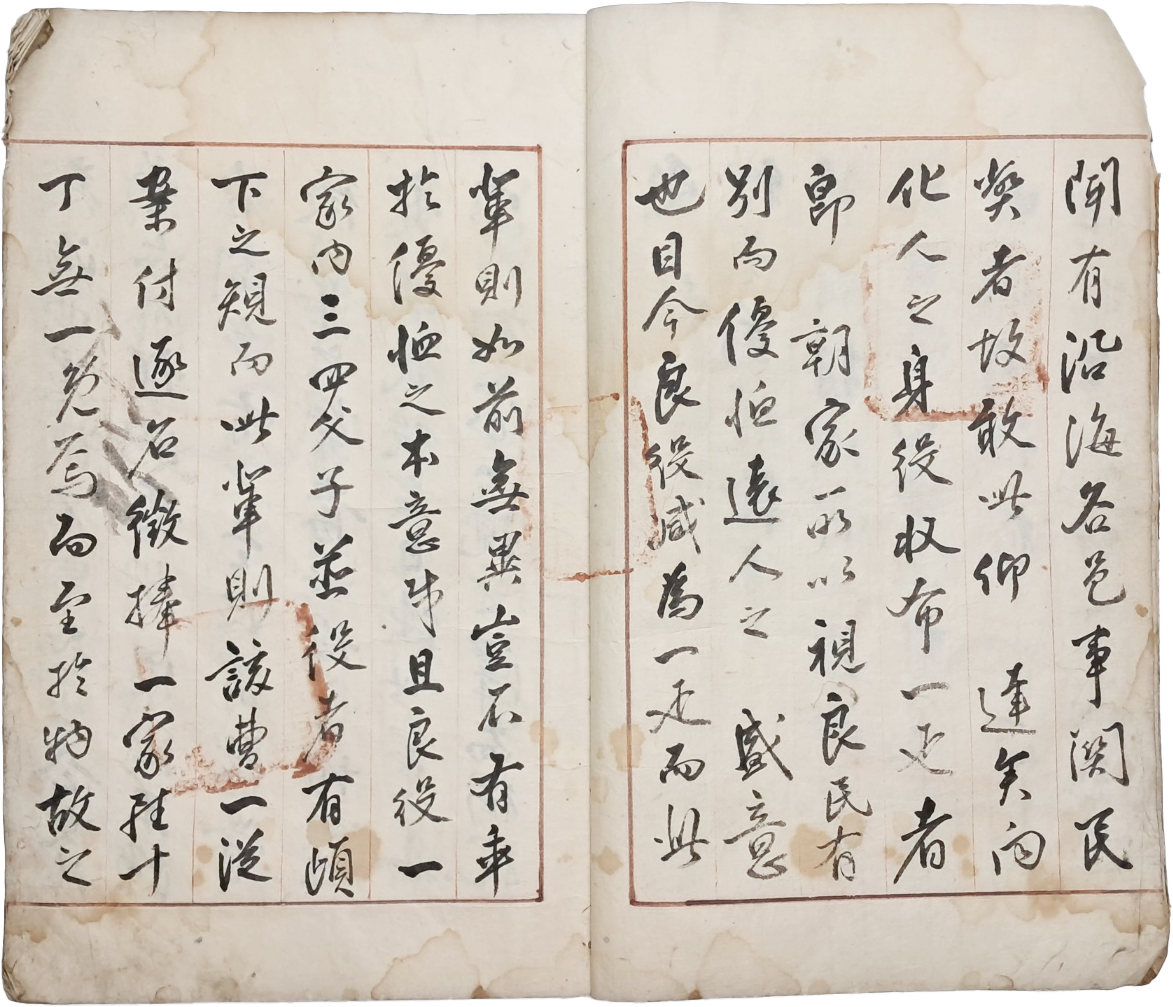 聞有沿海各邑事関民
獘者故敢此仰 達矣向
化人之身役収布一疋者
郎 朝家所以視良民有
別而優恤遠人之 盛意
也目今良役減為一疋而此
輩則如前無異豈不有乖
於優恤之本意哉且良役一
家內三四父子並役者有頉
下之規而此輩則該曹一從
案付逐名徵捧一家雖十
丁無一免焉而至於物故之